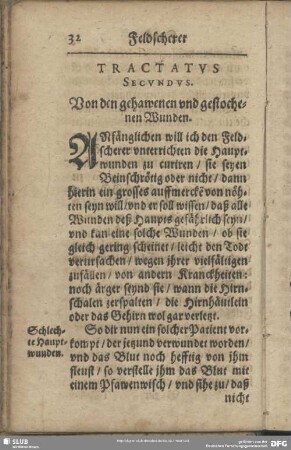 32 Feldscherer
TRACTATVS
SECVNDVS.
Von den gehawenen vnd gestoche-
nen Wunden.
ANfänglichen will ich den Feld-
scherer vnterrichten die Haupt-
wunden zu curiren / sie seyen
Beinschrötig oder nicht / dann
hierin ein grosses auffmerckē von nöh-
ten seyn will / vnd er soll wissen / daß alle
Wunden deß Haupts gefährlich seyn /
vnd kan eine solche Wunden / ob sie
gleich gering scheinet / leicht den Todt
verursachen / wegen jhrer vielfältigen
zufällen / von andern Kranckheiten:
noch ärger seynd sie / wann die Hirn-
schalen zerspalten / die Hirnhäutlein
oder das Gehirn wol gar verletzt.
Schlech-
te Haupt-
wunden.
So dir nun ein solcher Patient vor-
kompt / der jetzund verwundet worden /
vnd das Blut noch hefftig von jhm
fleust / so verstelle jhm das Blut mit
einem Pfawenwisch / vnd sihe zu / daß
nicht
SLUB